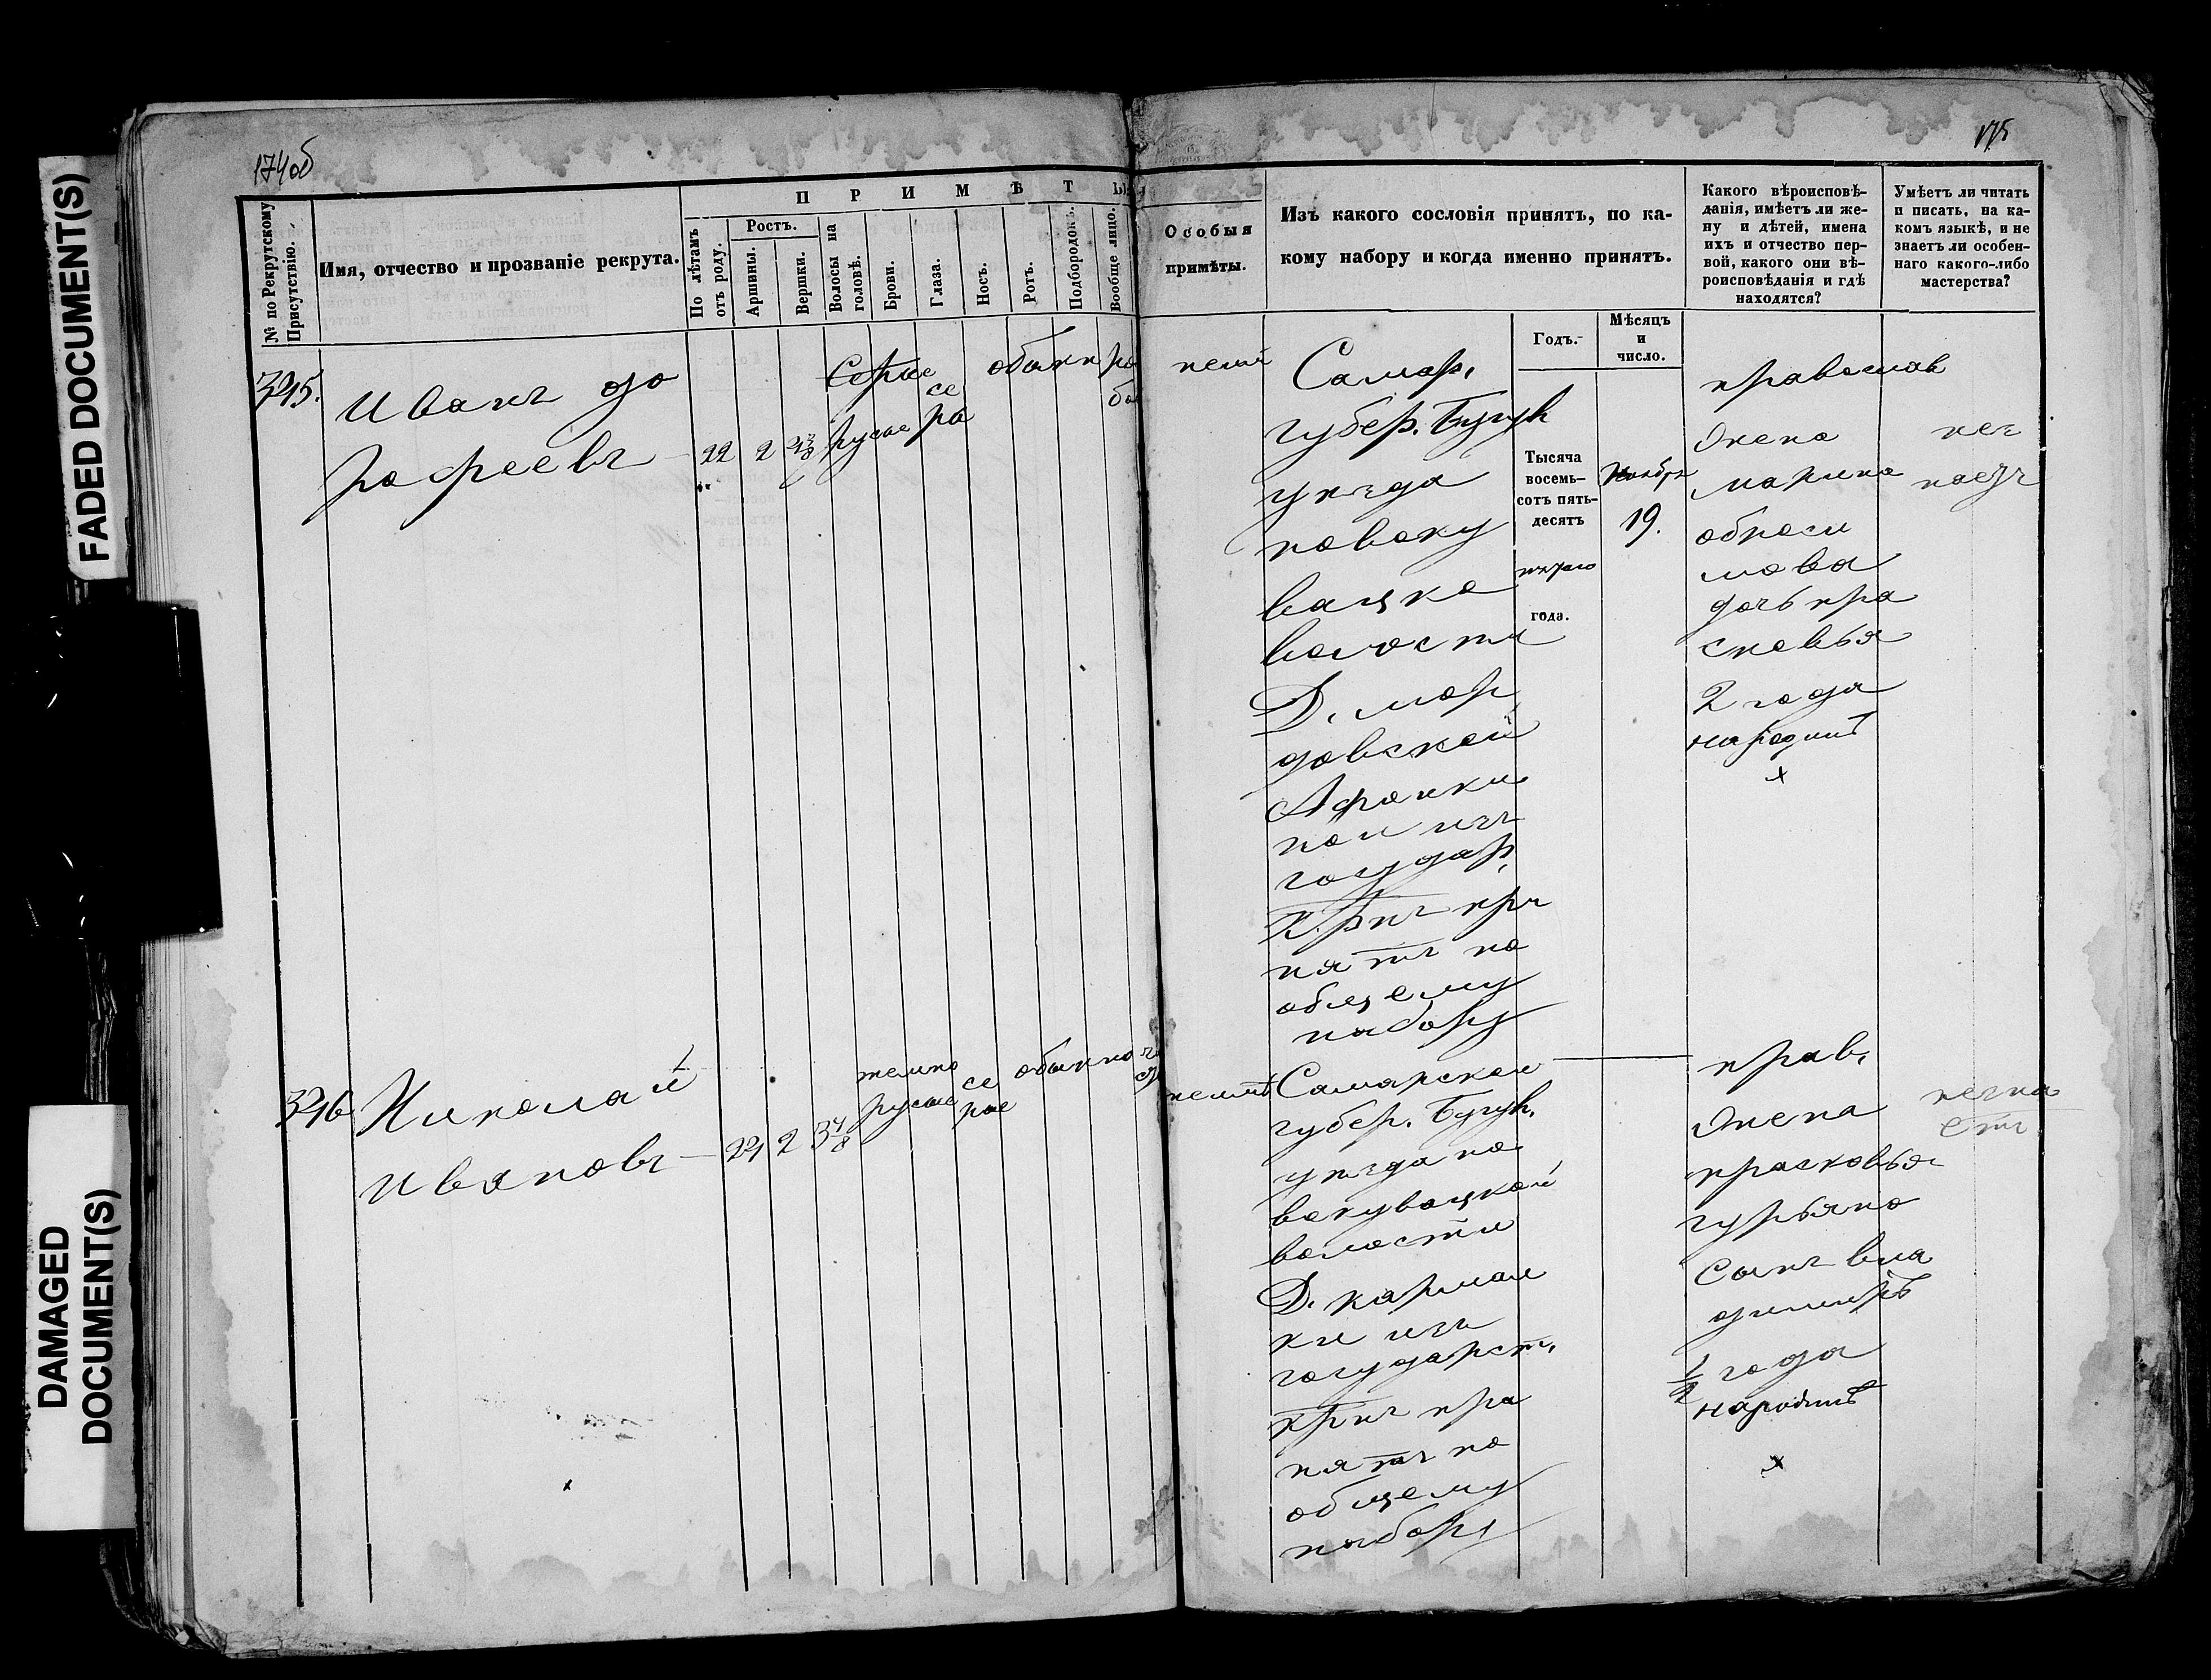 FADED DOCUMENT(S)
DAMAGED
DOCUMENT(S)
174об
175
№ по Рекрутскому
Присутствію.
Имя, отчество и прозваніе рекрута.
ПРИМѢТЫ
По лѣтамъ
отъ роду.
Ростъ.
Аршины.
Вершки.
Волосы на
головѣ.
Брови.
Глаза.
Носъ.
Ротъ.
Подбородокъ.
Вообще лицо.
Особыя
примѣты.
Изъ какого сословія принятъ, по ка-
кому набору и когда именно принятъ.
Какого вѣроисповѣ-
данія, имѣетъ ли же-
ну и дѣтей, имена
ихъ и отчество пер-
вой, какого они вѣ-
роисповѣданія и гдѣ
находятся?
Умѣетъ ли читать
и писать, на ка-
комъ языкѣ, и не
знаетъ ли особен-
наго какого-либо
мастерства?
Годъ.
Мѣсяцъ
и
число.
Иванъ до
рофеевъ
22
2
русые
се
ры
обыкн
Самар.
губер. Бугул
уѣзда
волости
Д. мор
довской
Афонки
ной изъ
государ.
крнъ при
нятъ по
общему
набору
Тысяча
восемь-
сотъ пять-
десятъ
пятаго
года.
Ноября
19.
православ
Жена
марина
дочь пра
сковья
2 года
народинѣ
х
Николай
Ивановъ
2
3 4/8
темно
русые
се
рые
обыкно
Самарской
губер. Бугул.
уѣзда но
волости
Д. кармал
ки изъ
государст.
крнъ при
нятъ по
общему
набору
прав.
Жена
прасковья
гурьяно
Сынъ вла
димиръ
1/2 года
народинѣ
х